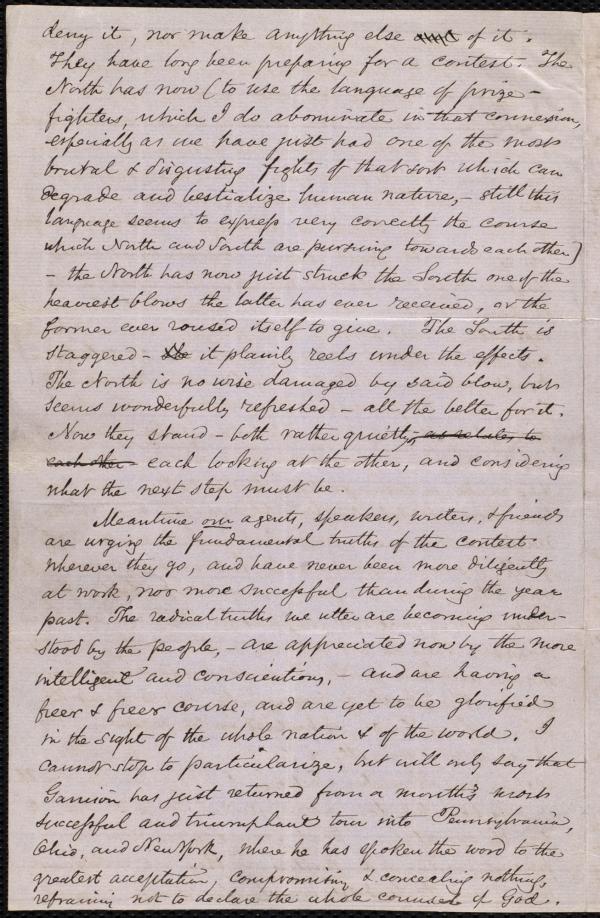 deny it, nor make anything else of it.
They have long been preparing for a contest. The
North has now (to use the language of prize-
fighters, which I do abominate in that connexion,
especially as we have just had one of the most
brutal & disgusting fights of that sort which can
degrade and bestialize human nature, - still this
language seems to express very correctly the course
which North and South are pursuing towards each other)
- the North has now just struck the South one of the
heaviest blows the latter has ever received, or the
former ever roused itself to give. The South is
staggered - it plainly reels under the effects.
The North is no wise damaged by said blow, but
seems wonderfully refreshed - all the better for it.
Now they stand - both rather quietly, as relates to
each other - each looking at the other, and considering
what the next step must be.
Meantime our agents, speakers, writers, & friends
are urging the fundamental truths of the contest
wherever they go, and have never been more diligently
at work, nor more successful than during the year
past. The radical truths we utter are becoming under-
stood by the people, - are appreciated now by the more
intelligent and conscientious, - and are having a
freer & freer course, and are yet to be glorified
in the sight of the whole nation & of the world. I
cannot stop to particularize, but will only say that
Garrison has just returned from a month's most
successful and triumphant tour into Pennsylvania,
Ohio, and New York, where he has spoken the word to the
greatest acceptation, compromising & concealing nothing,
refraining not to declare the whole counsel of God.